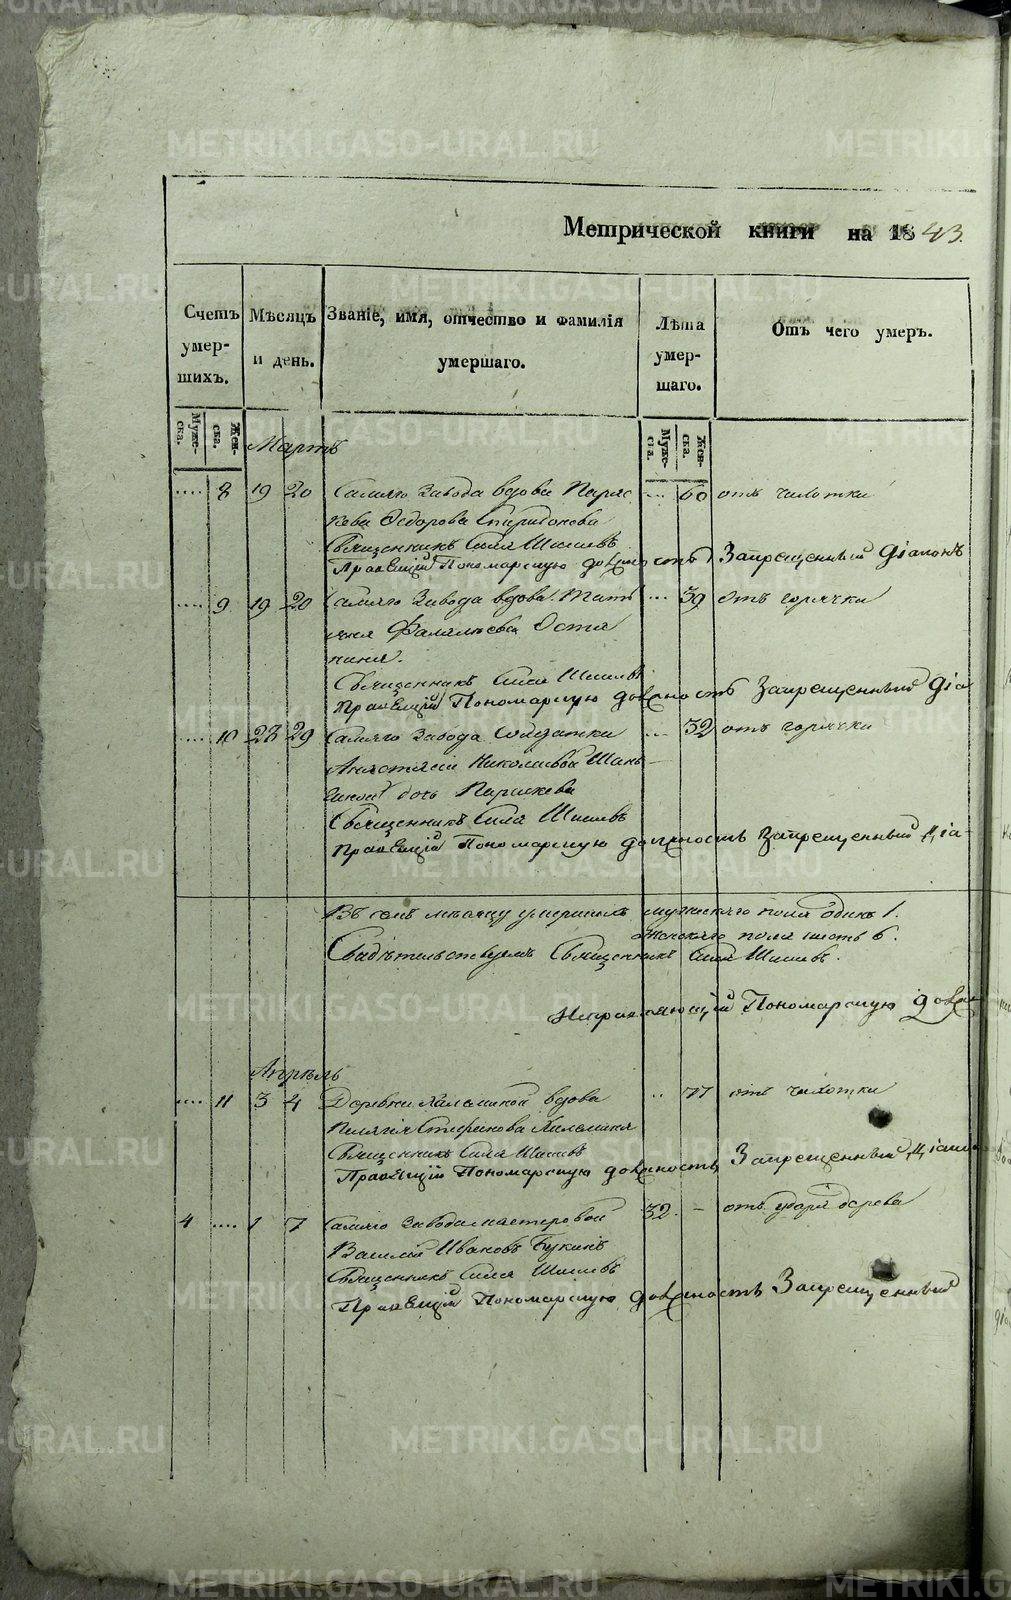 Метрической книги на 1843.
Счетъ умер-шихъ.
Мѣсяцъ и день.
Званіе, имя, отчество и фамилія умершаго.
Лѣта умер-шаго.
Отъ чего умеръ.
Муже-ска.
Жен-ска.
Муже-ска.
Жен-ска.
Мартъ
.... 8 19 20 Самаго Завода вдова Парас ... 60 отъ чахотки
кева Ѳедорова Спиридонова
Священникъ Сила Шишевъ
Правящій Пономарскую должность Запрещенный діаконъ
.... 9 19 20 Самаго Завода вдова Тать ... 39 отъ горячки
яна Фалалѣева Оста
нина.
Священникъ Сила Шишевъ
Правящій Пономарскую должность Запрещенный діа
.... 10 28 29 Самаго Завода Солдатки ... 32 отъ горячки
Анастасіи Николаевой Шань
гиной дочь Параскева
Священникъ Сила Шишевъ
Правящій Пономарскую должность Запрещенный діа-
Въ семъ мѣсяцу умершихъ мужескаго пола одинъ 1.
женскаго пола шесть 6.
Свидѣтельствуемъ Священникъ Сила Шишевъ.
Исправляющій Пономарскую
Апрѣль
.... 11 3 4 Деревни вдова .. 77 отъ чахотки
Пелагія
Священникъ Сила Шишевъ
Правящій Пономарскую должность Запрещенный діакон
4 .... 1 7 Самаго Завода мастеровой 32. - отъ удара дерева
Василій Ивановъ Букинъ
Священникъ Сила Шишевъ
Правящій Пономарскую должность Запрещенный
METRIKI.GASO-URAL.RU